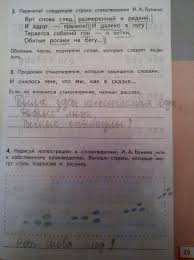 2. Перечитай следующие строки стихотворения И. А. Бунина.
Вот снова след, размеренный и редкий,
И вдруг — прыжок! И далеко в лугу
Теряется собачий гон — и ветки,
Обитые рогами на бегу...
Обозначь паузы, подчеркни слова, которые следует выделить.
3. Продолжи стихотворение, которое начинается словами:
И снилось мне, что мы, как в сказке...
Если не получится стихотворение, напиши рассказ.
Были здесь
4. Нарисуй иллюстрацию к стихотворению И. А. Бунина или
к собственному произведению. Выпиши строки, которые могут
стать подписью к рисунку.
Вот снова след
29